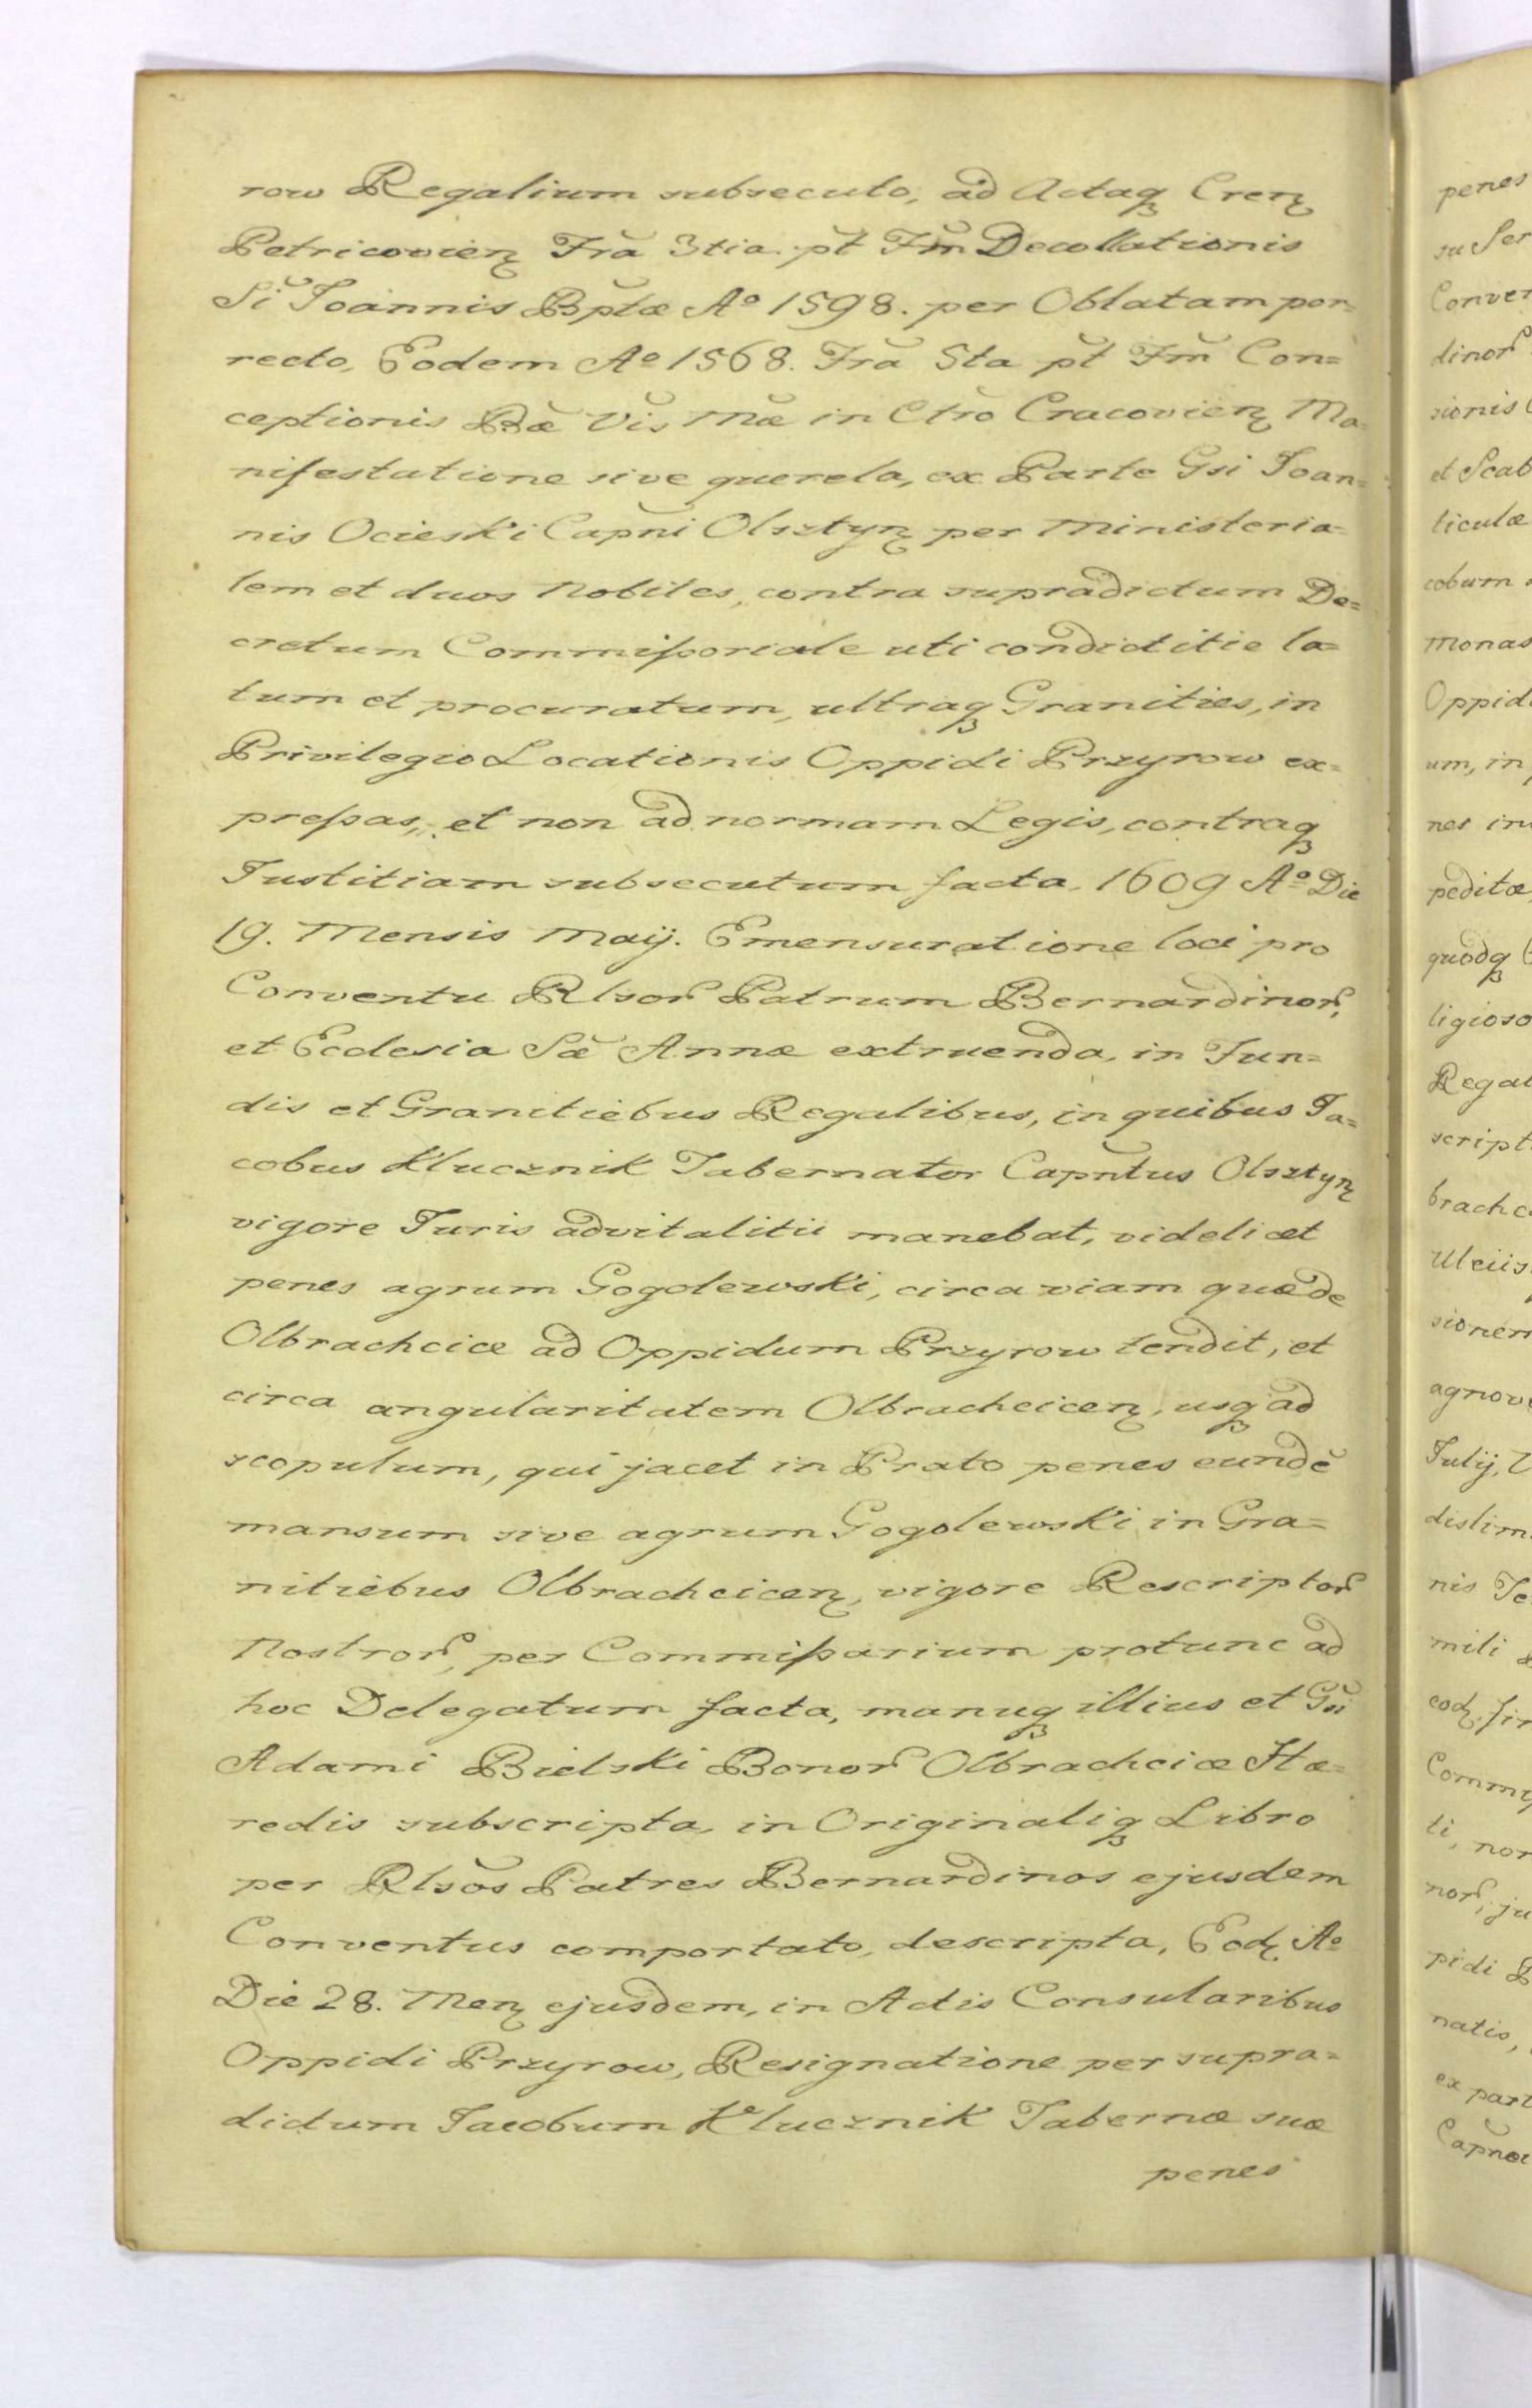 row Regalium subsecuto, ad Actaq̨ Cren̨
Petricovien̨ Fra͠ 3tia. pt͠ Fm͠ Decollationis
Si͠ Joannis Bptæ Aº 1598. per Oblatam por=
recto, Eodem Aº 1568. Fra͠ 5ta pt͠ Fm͠ Con=
ceptionis Bæ͠ Vis͠ Mæ͠ in Ctro͠ Cracovien̨ Ma=
nifestatione sive querela, ex Parte Gsi Joan=
nis Ocieski Capni͠ Olsztyn̨ per Ministeria=
lem et duos Nobiles, contra supradictum De=
cretum Commißoriale uti condictitie la=
tum et procuratum, ultraq̨ Granities, in
Privilegio Locationis Oppidi Przyrow ex=
preßas, et non ad normam Legis, contraq̨
Justitiam subsecutum facta. 1609 Aº Die
19. Mensis Maij. Emensuratione loci pro
Conventu Rlsor͠ Patrum Bernardinor͠,
et Ecclesia Sæ͠ Annæ extruenda, in Fun=
dis et Granitiebus Regalibus, in quibus Ja=
cobus Klucznik Tabernator Capntus͠ Olsztyn̨
vigore Juris advitalitii manebat, videlicet
penes agrum Gogolewski, circa viam quæ de
Olbrachcice ad Oppidum Przyrow tendit, et
circa angularitatem Olbrachcicen̨, usq̨ ad
scopulum, qui jacet in Prato penes eunde͠
mansum sive agrum Gogolewski in Gra=
nitiebus Olbrachcicen̨, vigore Rescriptor͠
Nostror͠, per Commißarium protunc ad
hoc Delegatum facta, manuq̨ illius et Gsi͠
Adami Bielski Bonor͠ Olbrachcice Hæ=
redis subscripta, in Originaliq̨ Libro
per Rlsos͠ Patres Bernardinos ejusdem
Conventus comportato, descripta, Eod̨. Aº
Die 28. Men̨ ejusdem, in Actis Consularibus
Oppidi Przyrow, Resignatione per supra=
dictum Jacobum Klucznik Tabernæ suæ
penes
penes
su Ser
Conven
dinor͠
sionis
et Scab
ticulæ
cobum
Monas
Oppid
um, in
nes in
peditæ,
quodq̨
ligioso
Regal
script
brachc
Ulciis
sionem
agnov
Julij,
distim
nis Te
mili
eod̨. fir
Commi
ti, nor
nor͠, ju
pidi
natis,
ex part
Capnec